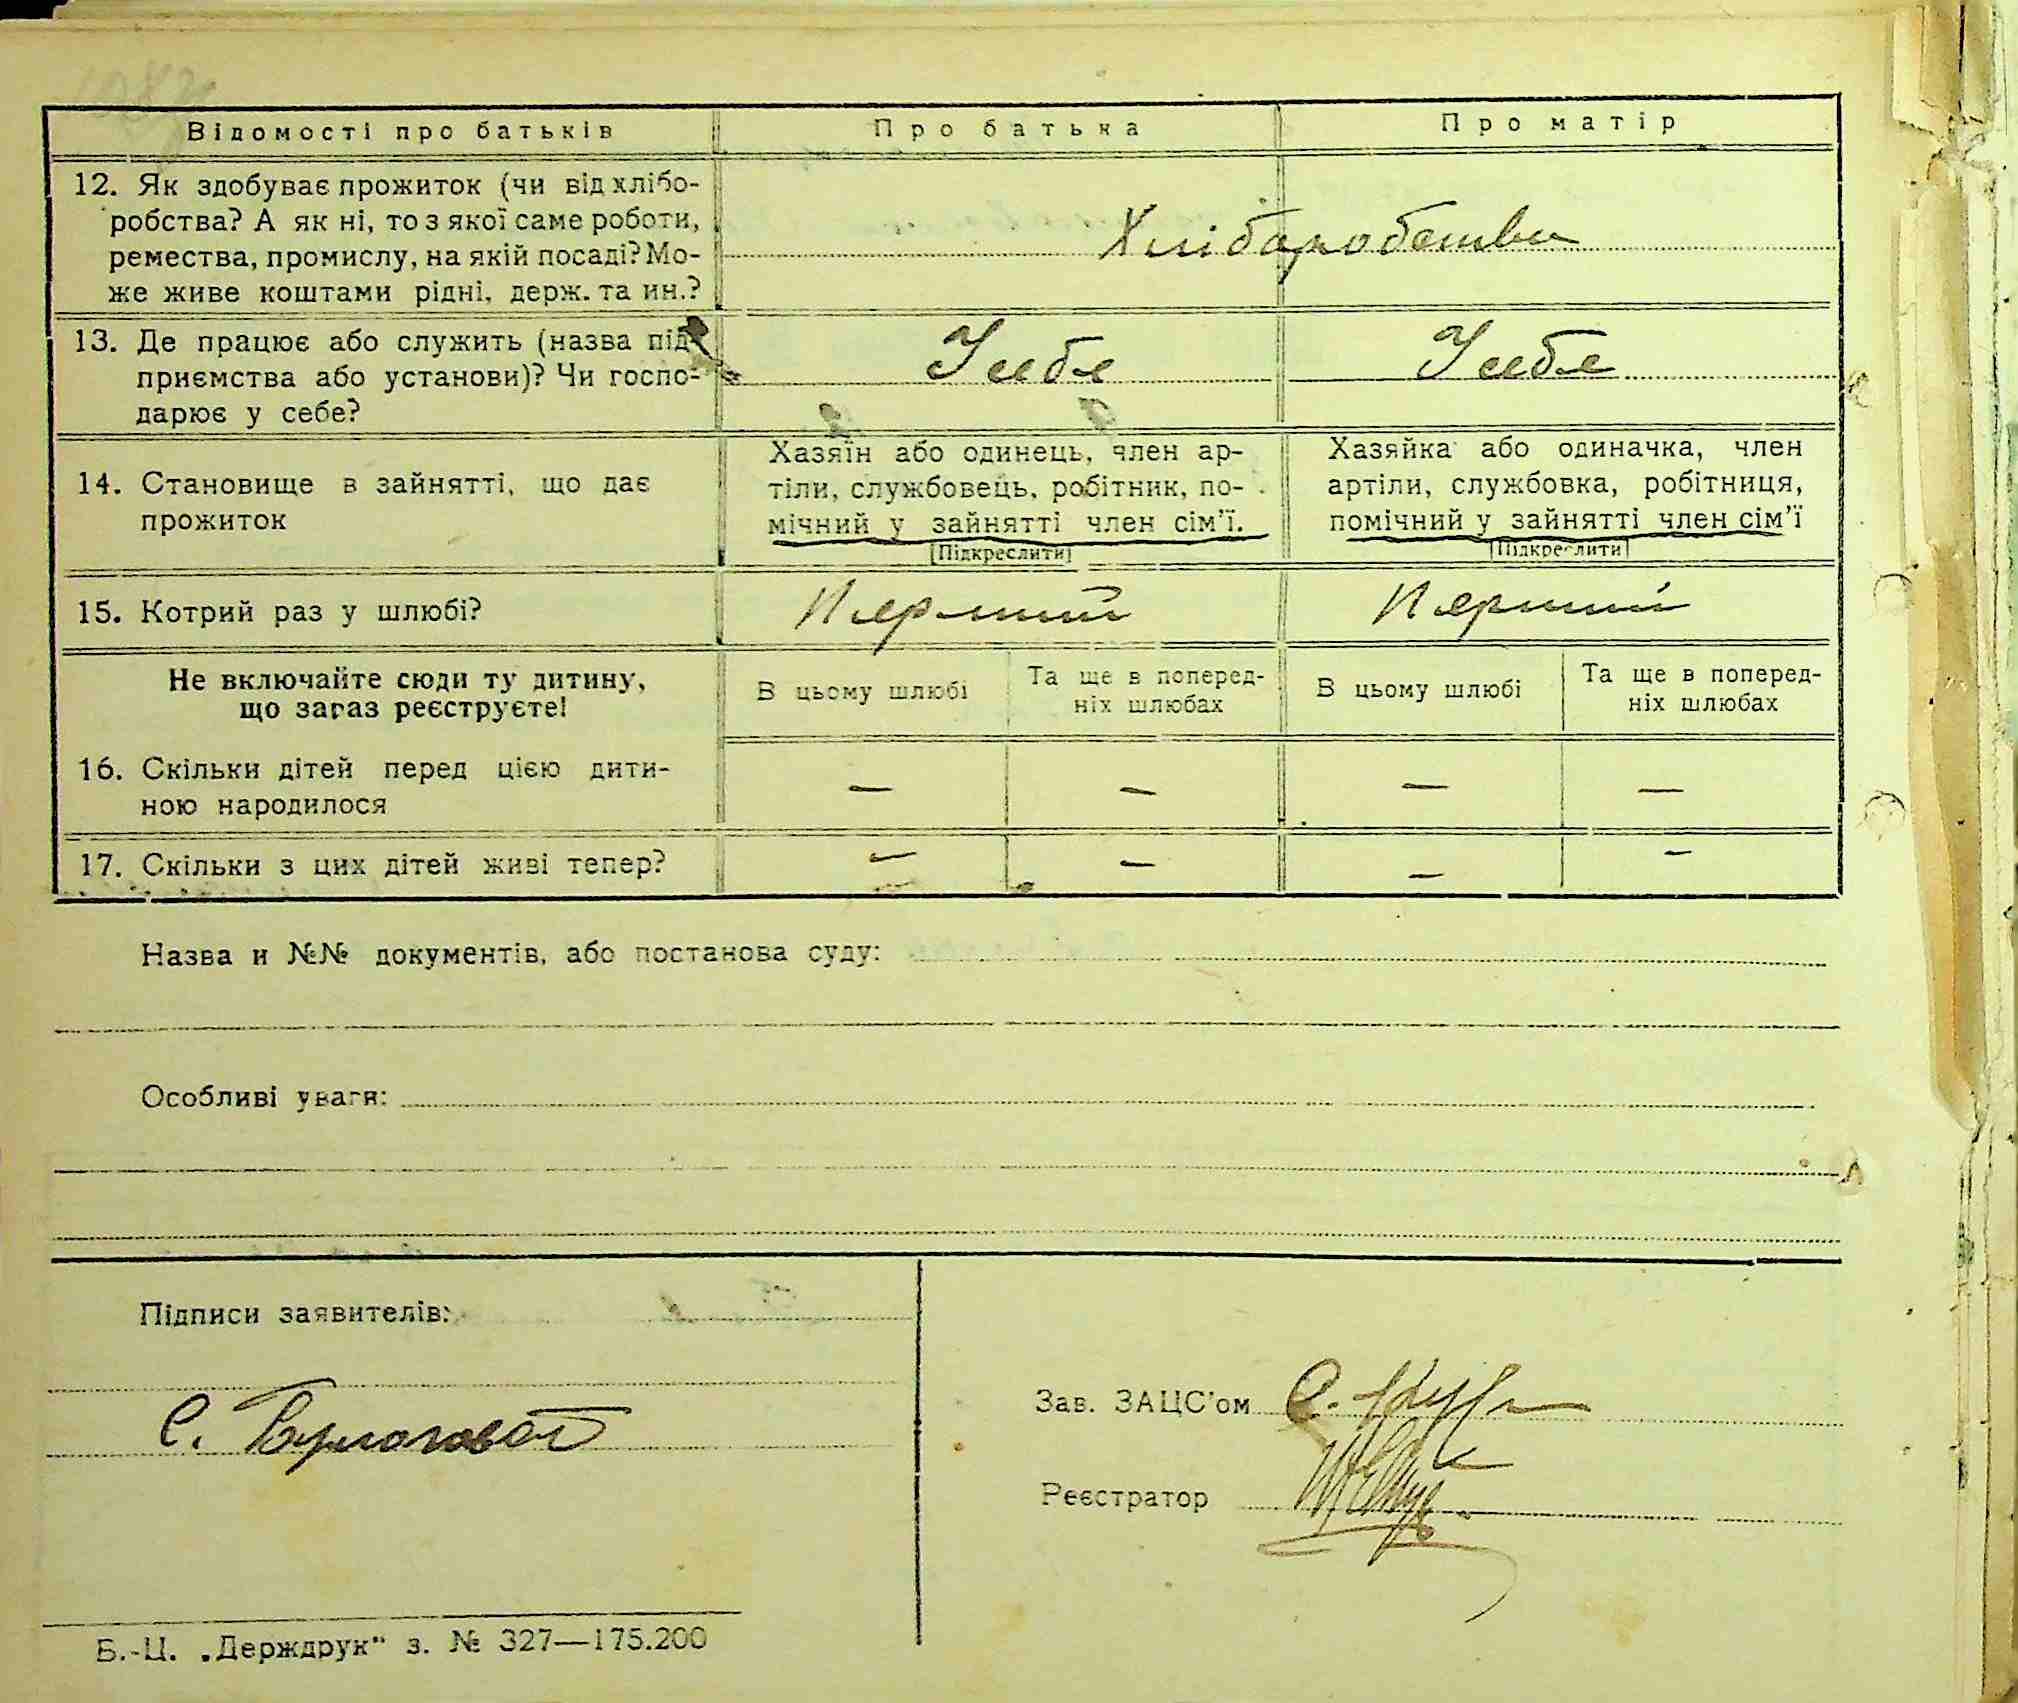 Відомості про батьків Про батька Про матір
12. Як здобуває прожиток (чи від хлібо-
робства? А як ні, то з якої саме роботи,
ремества, промислу, на якій посаді? Мо-
же живе коштами рідні, держ. та ин.?
Хліборобство
13. Де працює або служить (назва під-
приємства або установи)? Чи госпо-
дарює у себе?
У себе У себе
14. Становище в зайнятті, що дає
прожиток
Хазяїн або одинець, член ар-
тіли, службовець, робітник, по-
мічний у зайнятті член сім'ї.
[Підкреслити]
Хазяйка або одиначка, член
артіли, службовка, робітниця,
помічний у зайнятті член сім'ї
[Підкреслити]
15. Котрий раз у шлюбі? Перший Перший
Не включайте сюди ту дитину,
що зараз реєструєте!
В цьому шлюбі
Та ще в поперед-
ніх шлюбах
В цьому шлюбі
Та ще в поперед-
ніх шлюбах
16. Скільки дітей перед цією дити-
ною народилося
— — — —
17. Скільки з цих дітей живі тепер? — — — —
Назва и №№ документів, або постанова суду:
Особливі уваги:
Підписи заявителів:
С.
Зав. ЗАЦС'ом
Реєстратор
Б.-Ц. „Держдрук" з. № 327—175.200